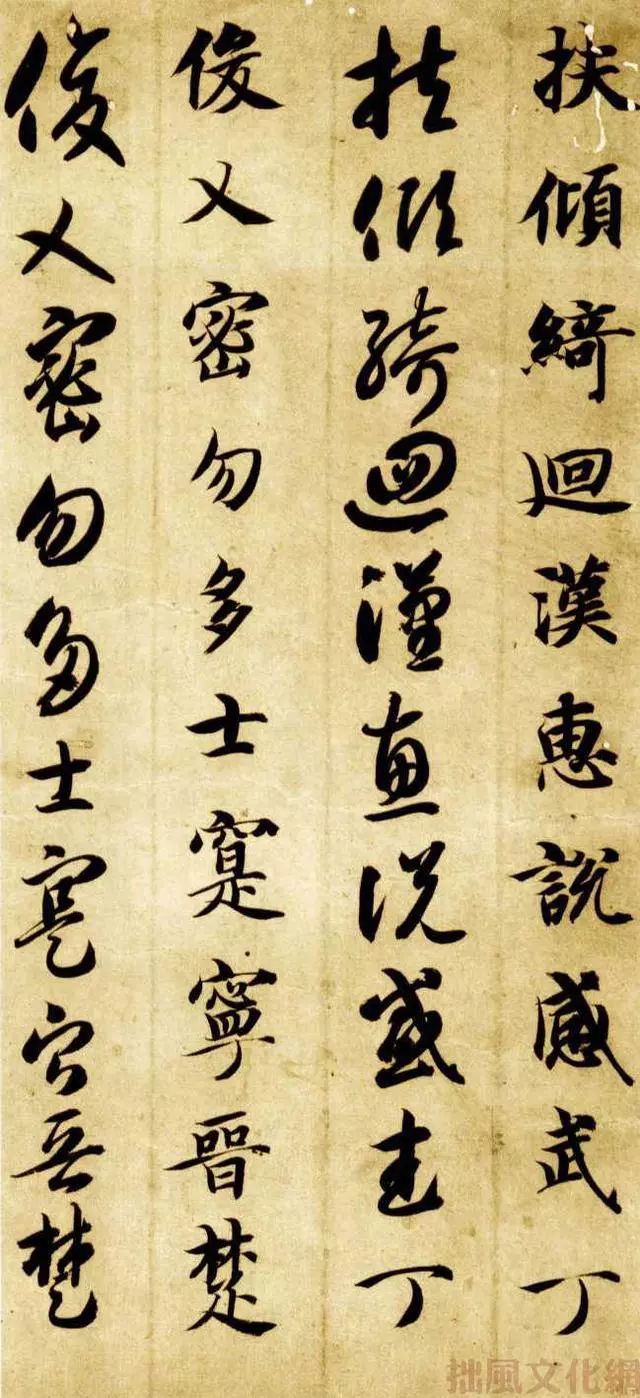 扶傾綺迴漢惠說感武丁
扶傾綺迴漢惠說感武丁
俊乂密勿多士寔寧晉楚
俊乂密勿多士寔寧晉楚
拙風文化網